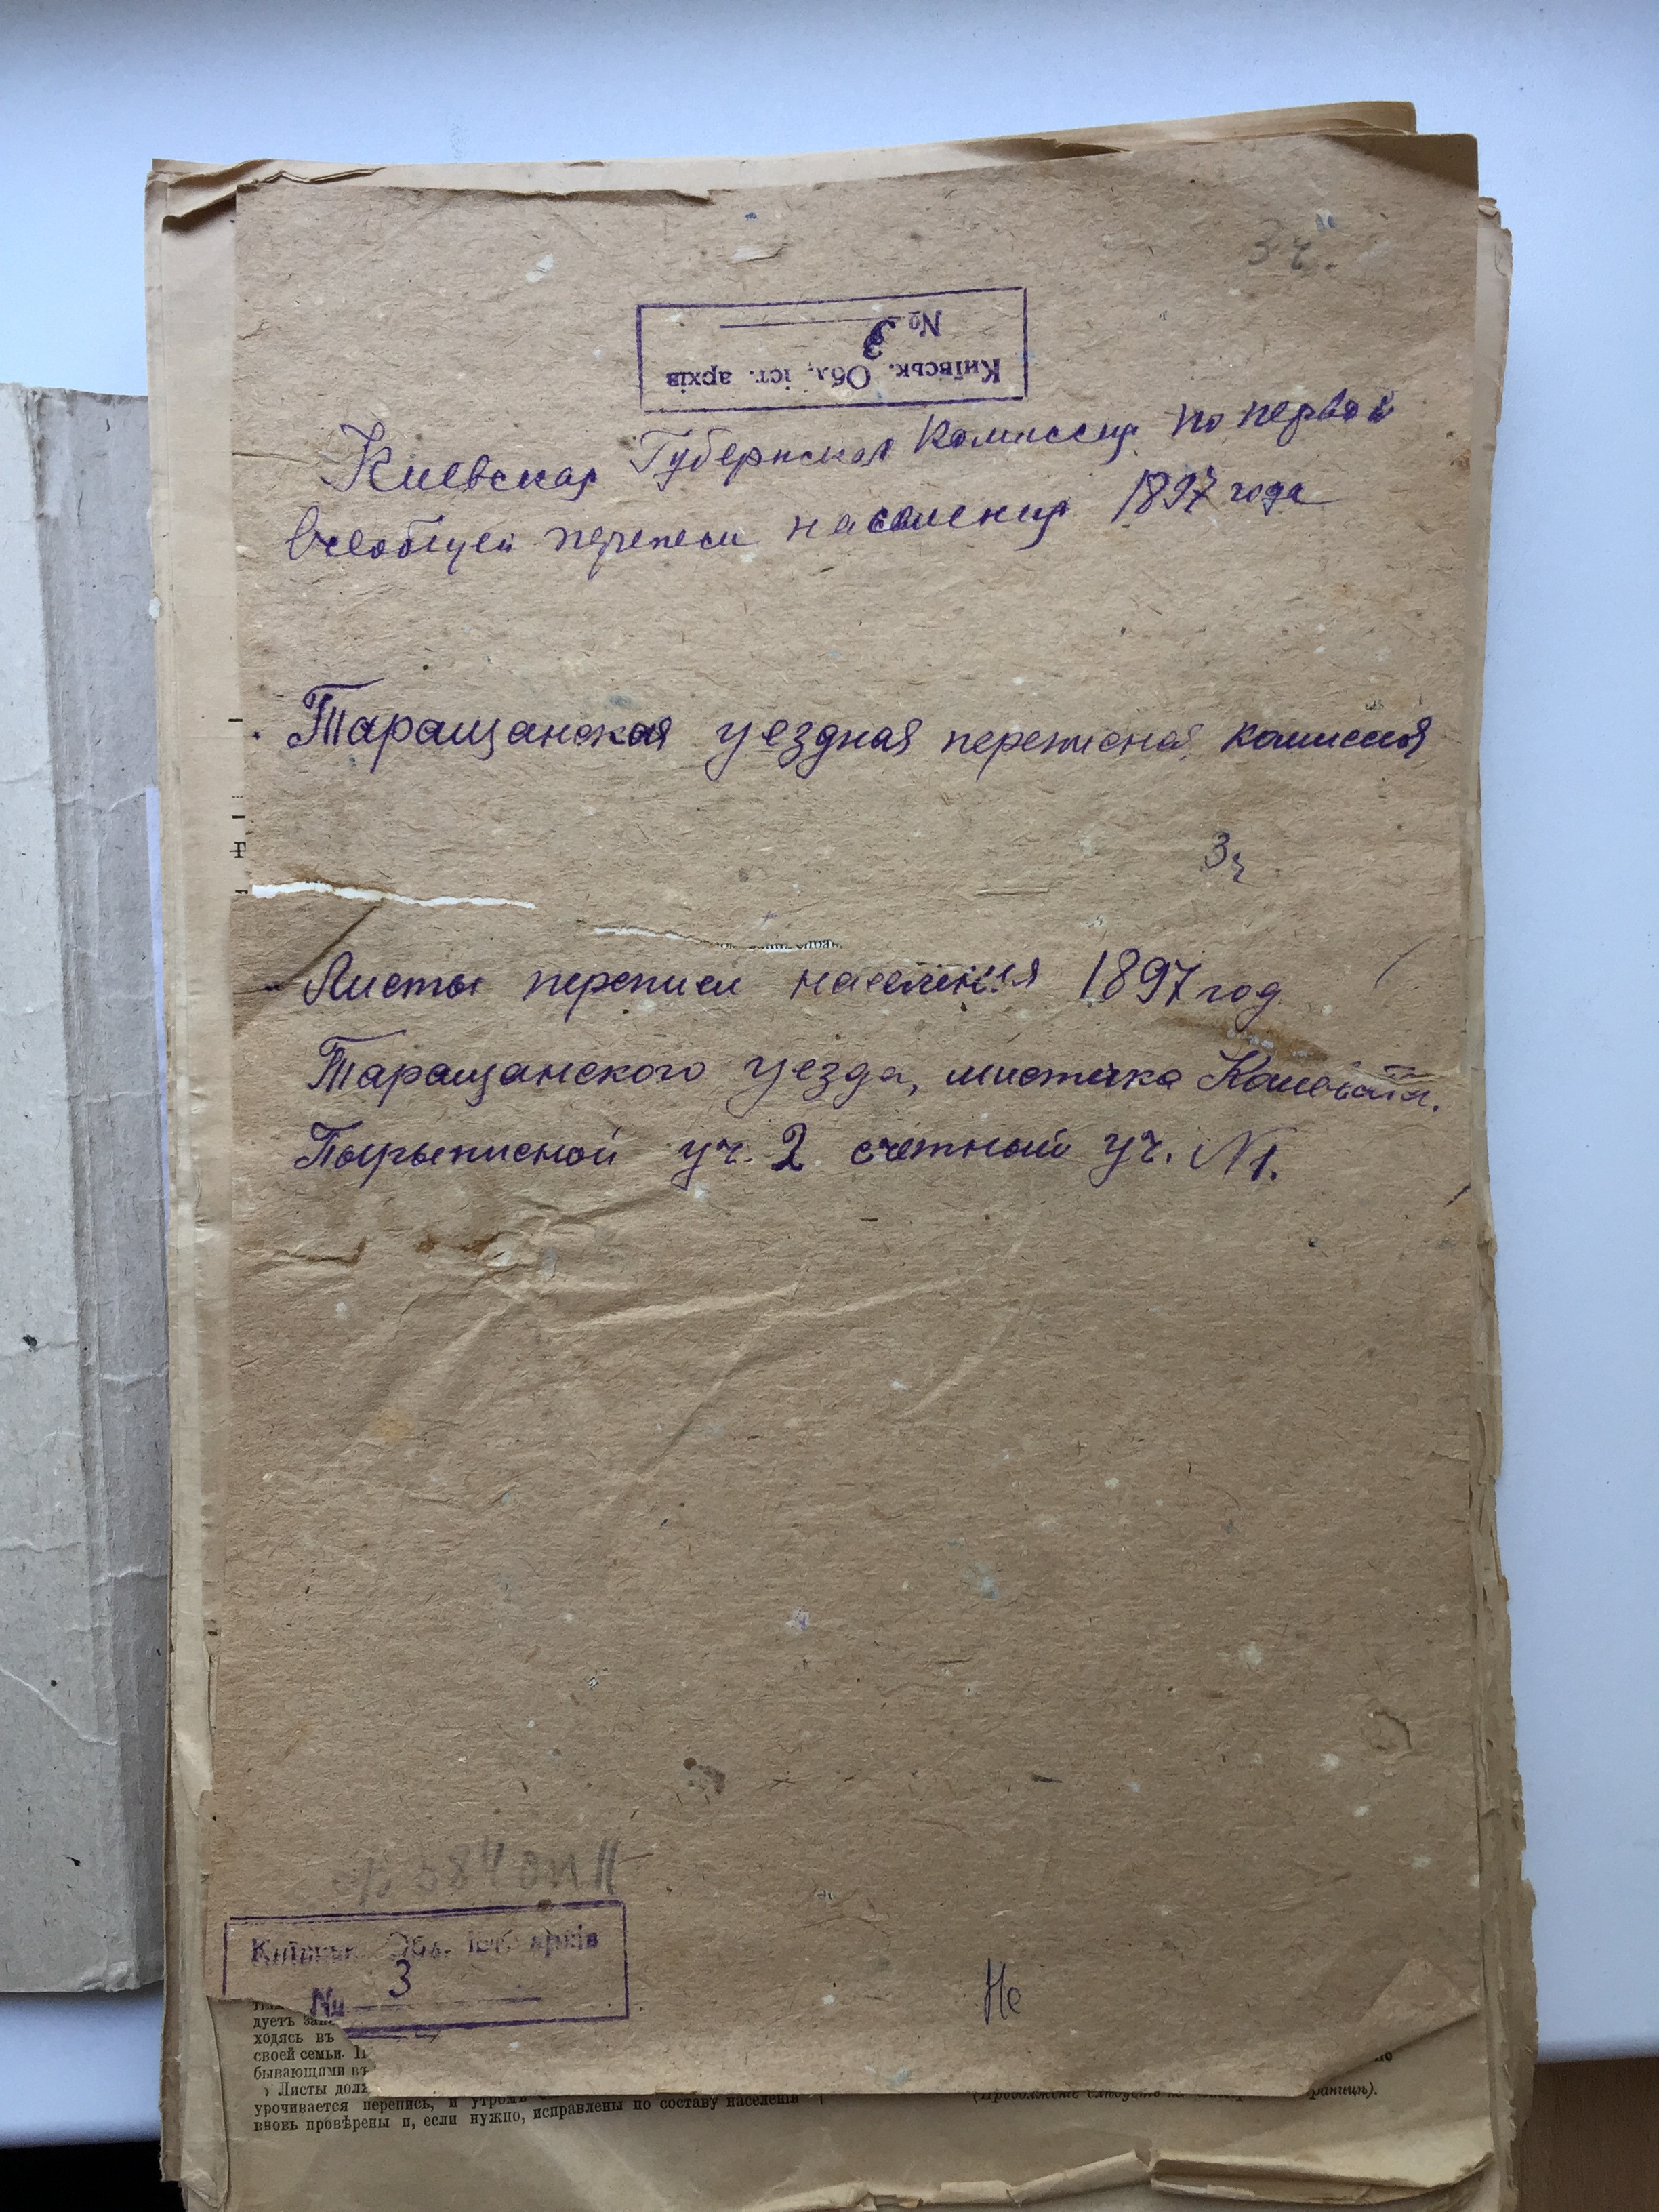 3 ч.
Київськ. Обл. іст. архів
№ 3
Киевская Губернская Комиссия по первой
всеобщей переписи населения 1897 года
Таращанская уездная переписная комиссия
3ч
Листы переписи населения 1897 год
Таращанского уезда, мистичка Ковшовата.
Пырыписной уч. 2 счетный уч. N 1.
384 оп
Київськ. Обл. іст. архів
№ 3
Не
дуетъ
ходясь въ
своей семьи.
бывающими въ
Листы
урочивается перепись, и утромъ
вновь провѣрены и, если нужно, исправлены по составу населенія